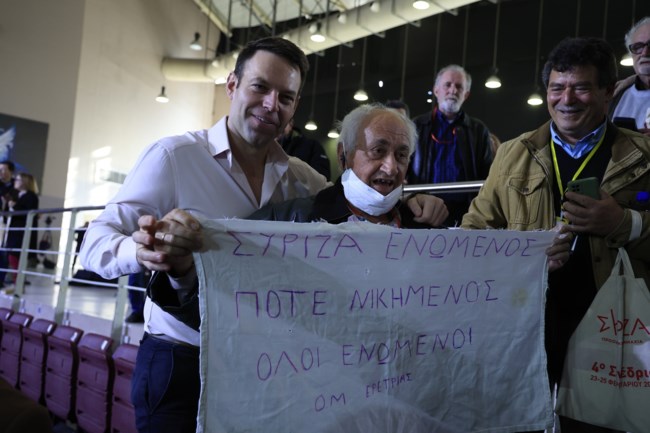 ΣΥΡΙΖΑ ΕΝΩΜΕΝΟΣ
ΠΟΤΕ ΝΙΚΗΜΕΝΟΣ
ΟΛΟΙ ΕΝΩΜΕΝΟΙ
ΟΜ ΕΡΕΤΡΙΑΣ
ΣΥΡΙΖΑ
4ο Συνέδρι